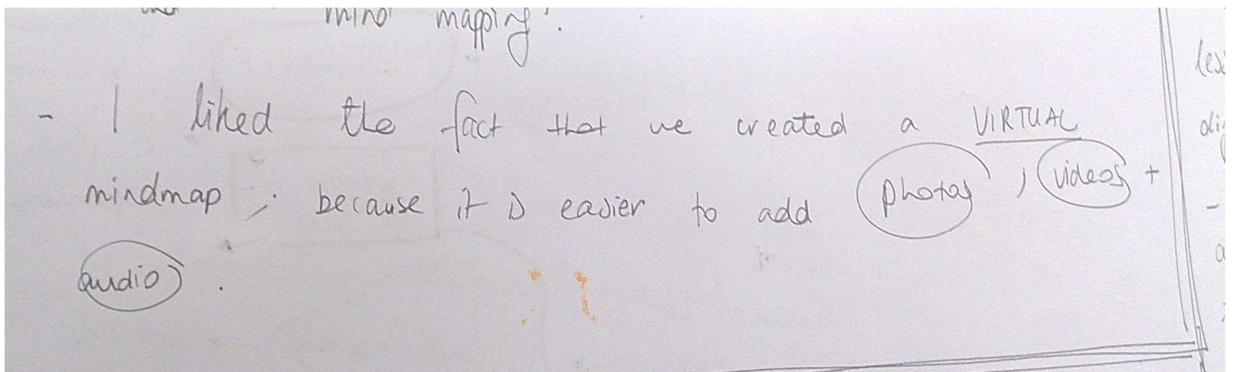 mind mapping.
- I liked the fact that we created a VIRTUAL
mindmap ; because it is easier to add photos , videos +
audio .